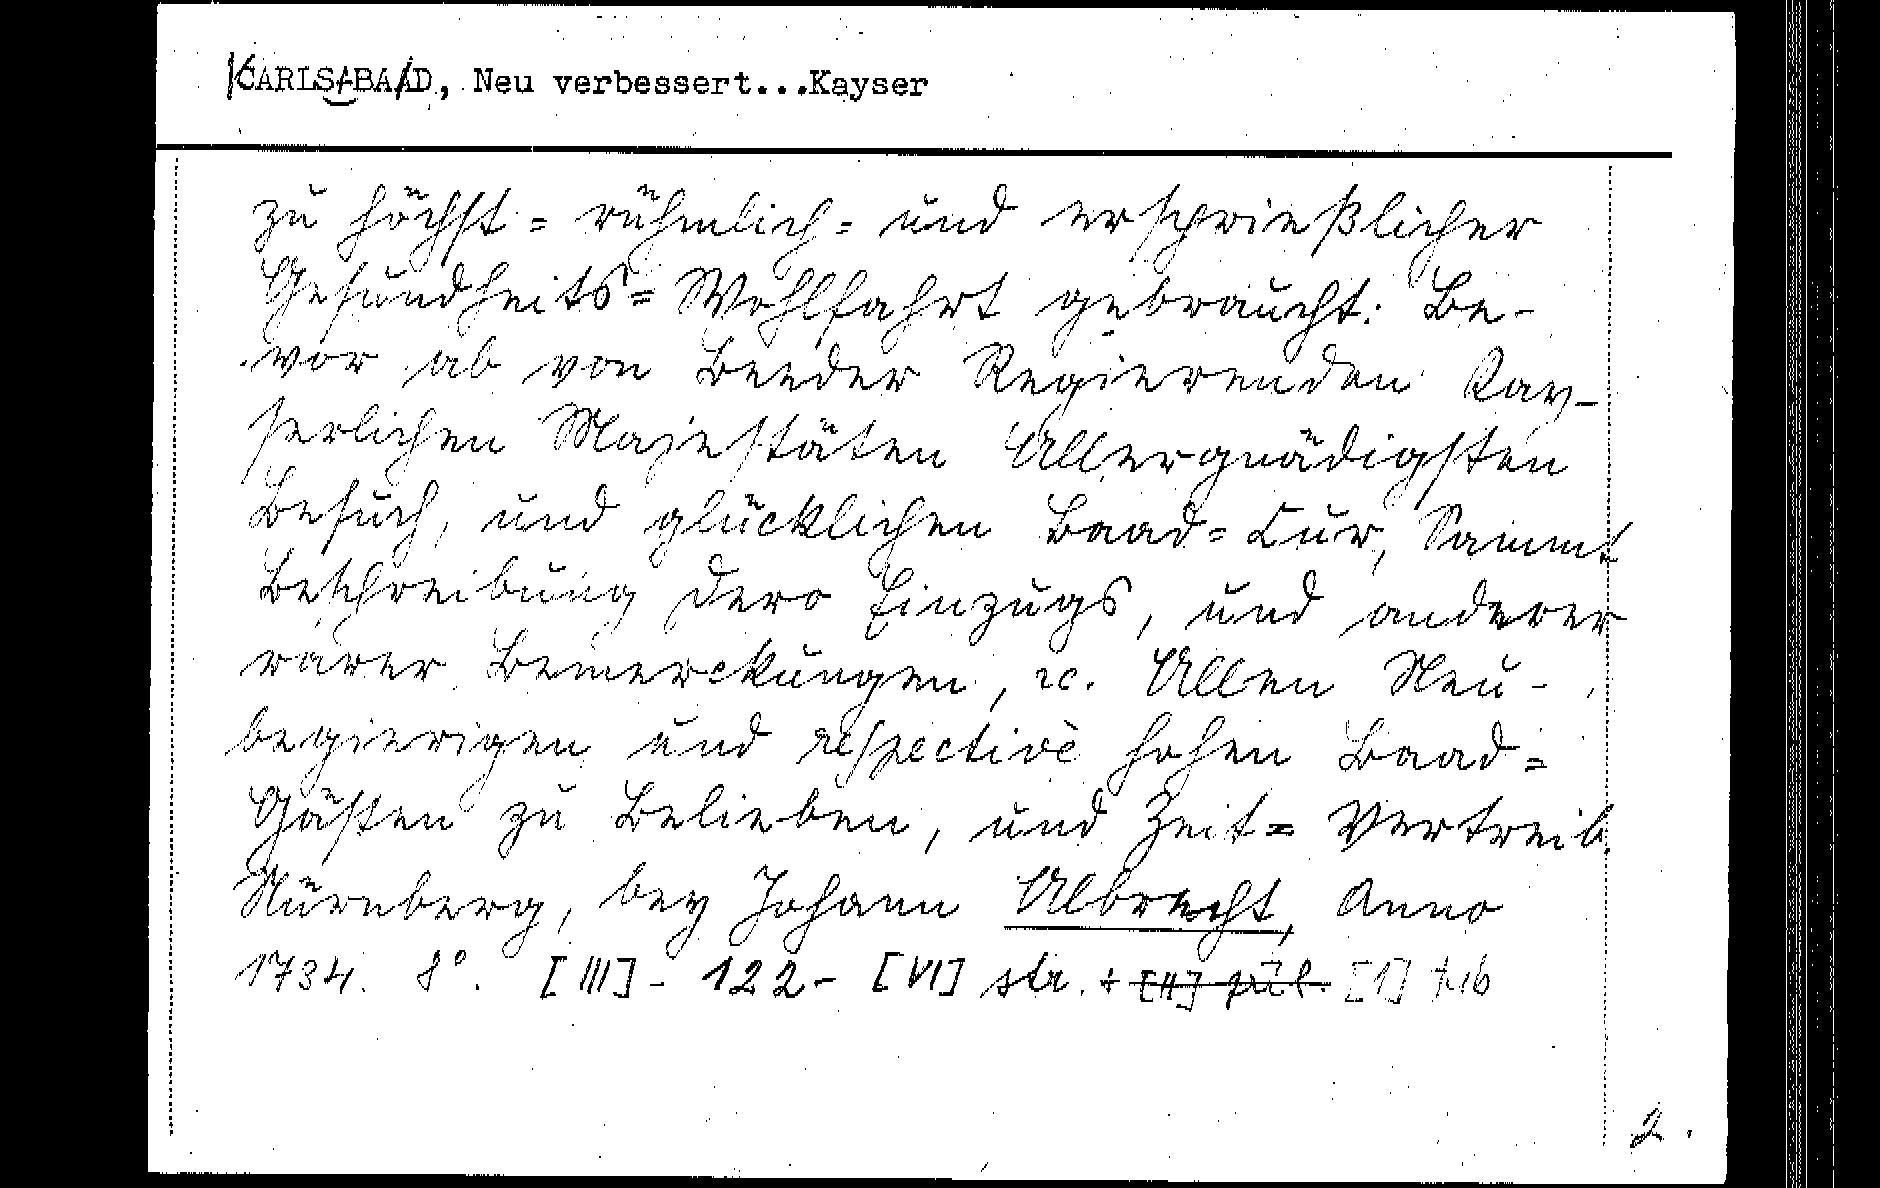 KCARLS-BAAD, Neu verbessert...Kayser
zu höchst= rühmlich= und ersprießlicher
Gesundheits= Wohlfahrt gebraucht: Be-
vor ab von Beeder Regierenden Kay-
serlichen Majestäten Allergnädigsten
Besuch, und glücklichen Baad= Cur, Sammt
Beschreibung Dero Einzugs, und anderer
rarer Bemerckungen, ꝛc. Allen Neu-
begierigen und respectivè hohen Baad=
Gästen zu Belieben, und Zeit= Vertreib.
Nürnberg, bey Johann Albrecht, Anno
1734. 8°. [III]- 122- [VI] str. + [II] příl. [1]
2.